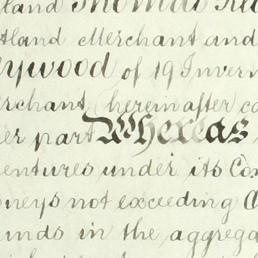 land Thomas
tland Merchant and
ywood of 19 Inver
rchant, hereinafter
er part Whereas
entures under its Com
neys not exceeding
unds in the aggrega